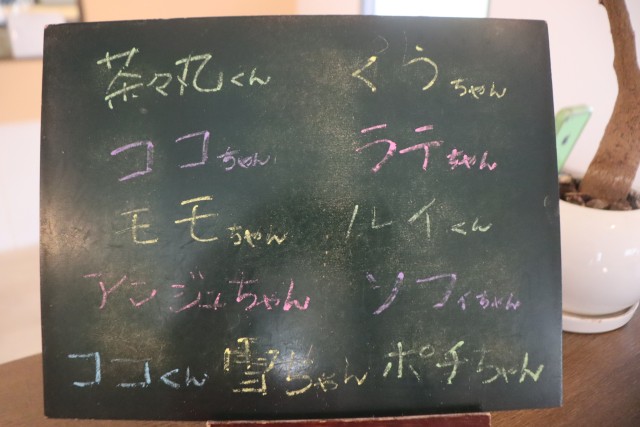 茶々丸くん ぐらちゃん
ココちゃん ラテちゃん
モモちゃん ルイくん
アンジュちゃん ソフィちゃん
ココくん 雪ちゃん ポチちゃん